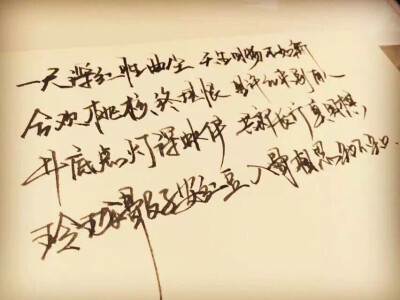 一尺深红胜曲尘 天生旧物不如新
合欢桃核终堪恨 里许元来别有人
井底点灯深烛伊 共郎长行莫围棋
玲珑骰子安红豆 入骨相思知不知